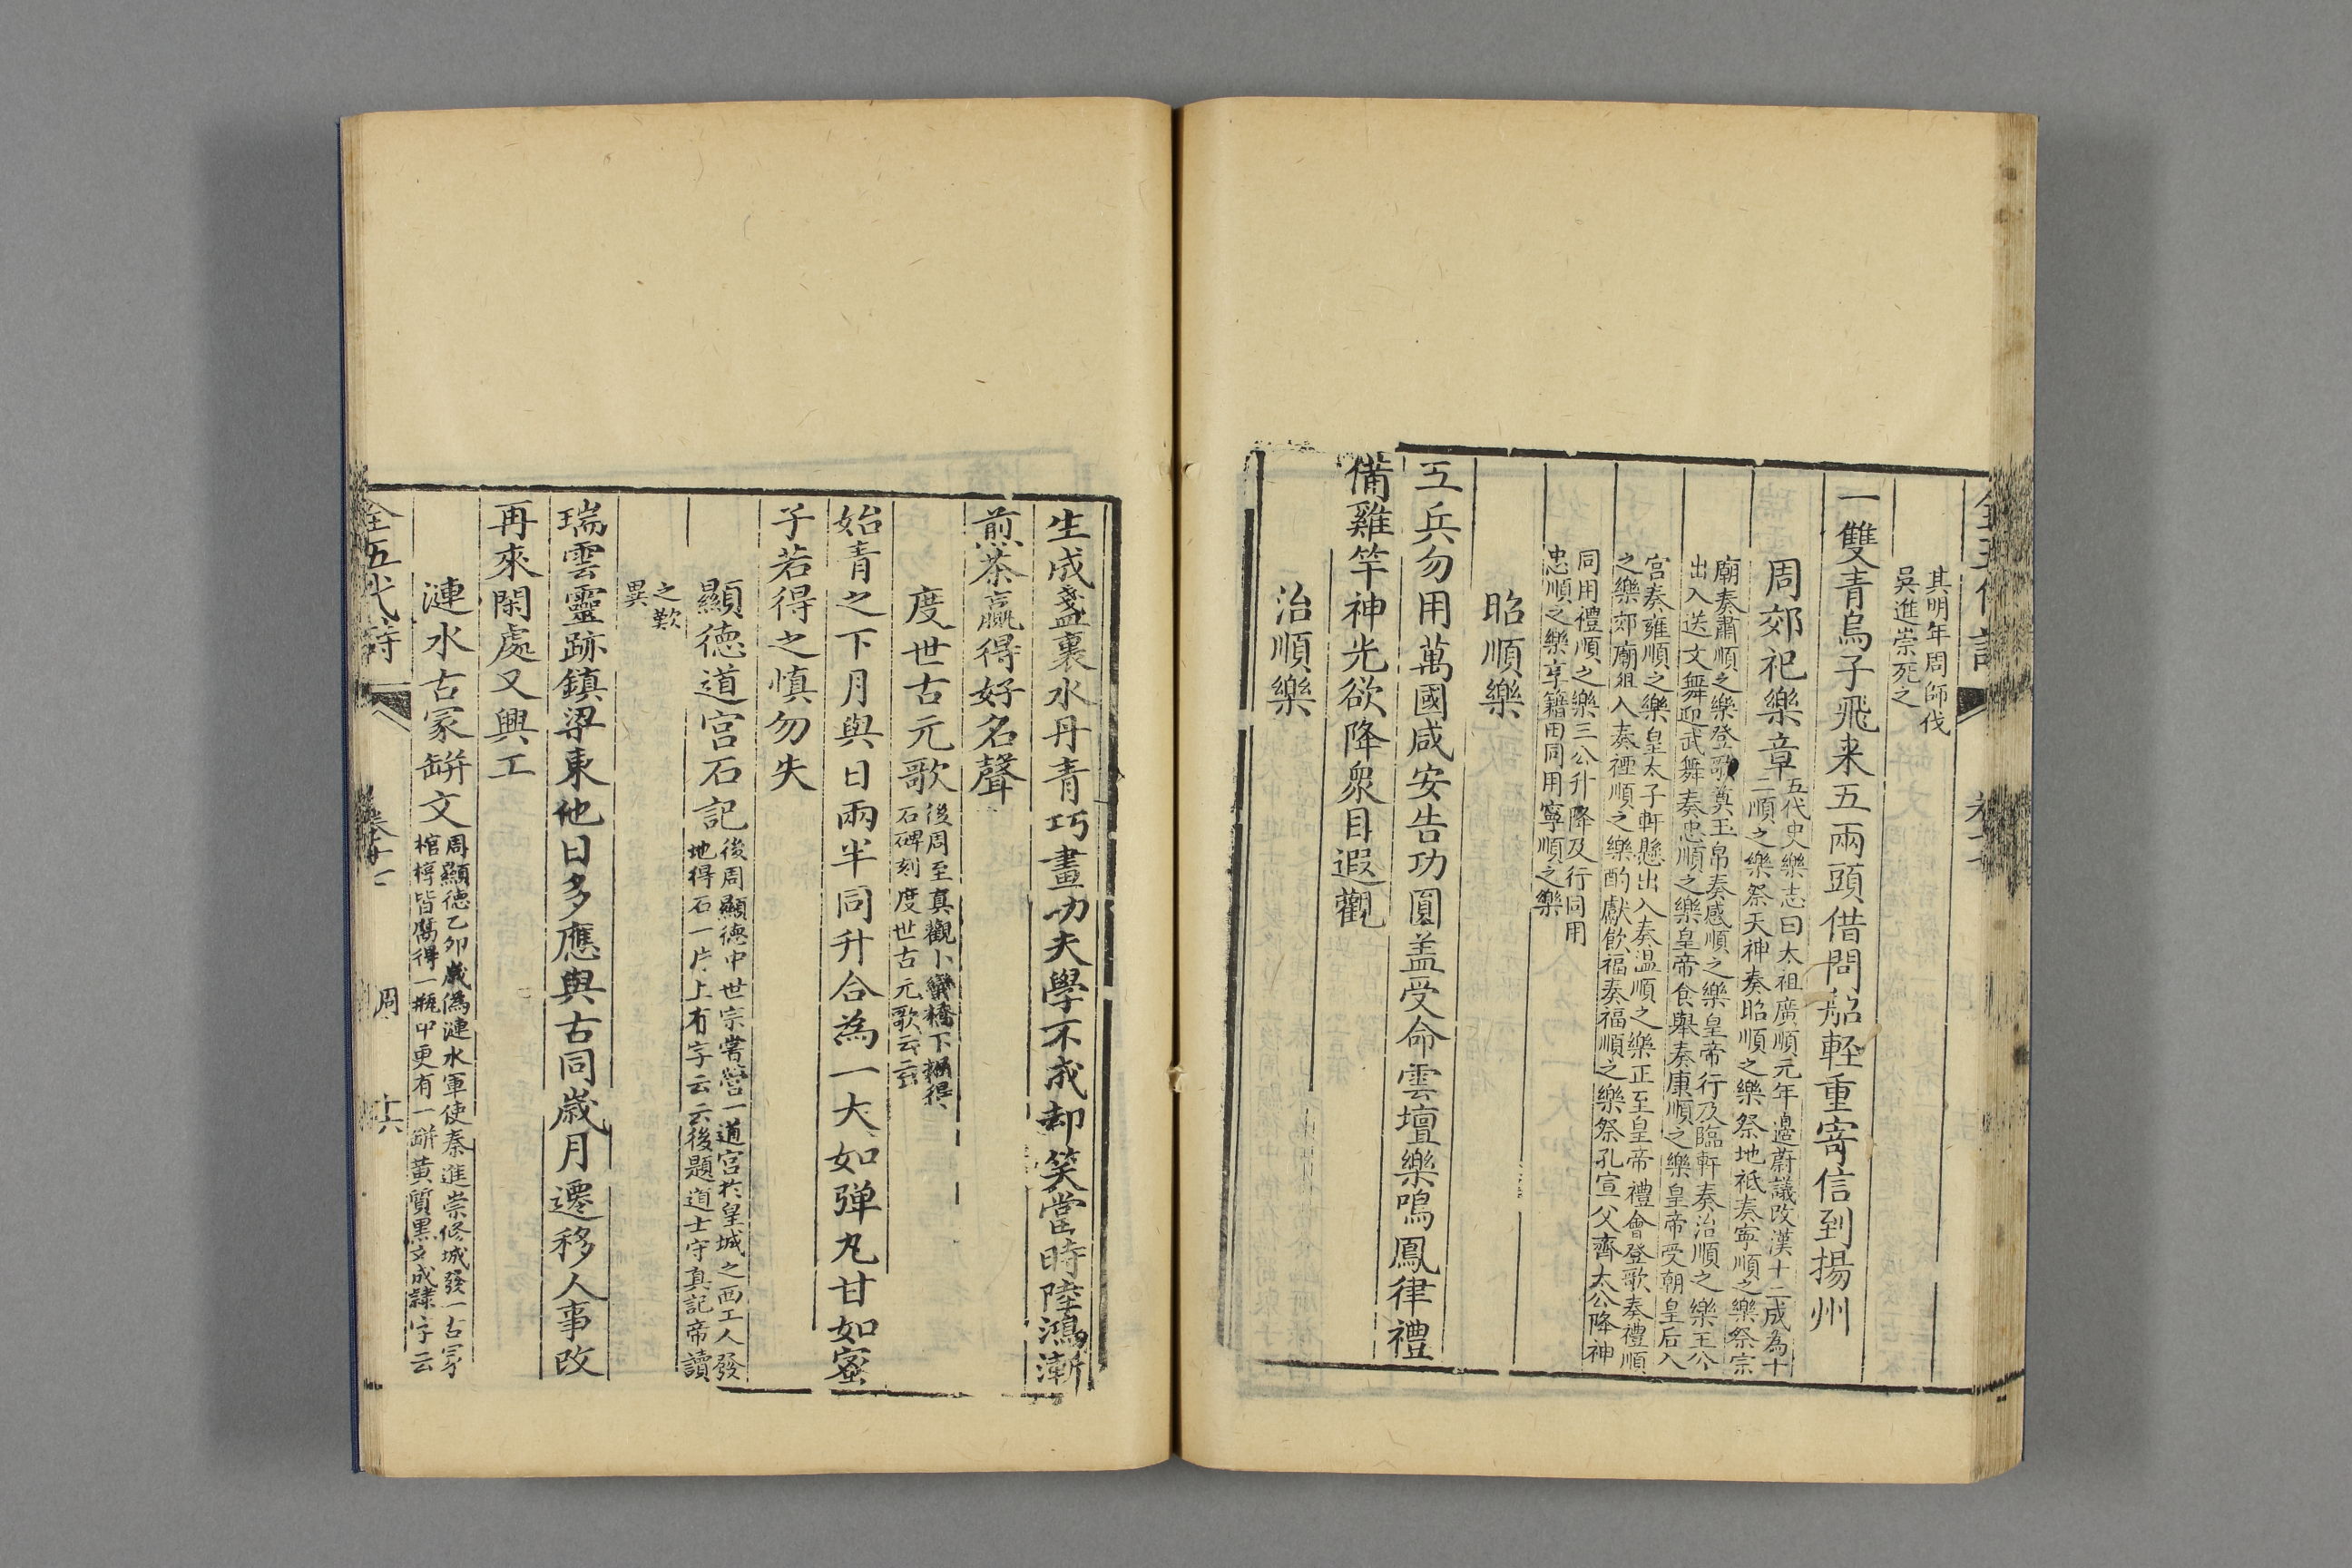 其明年周師伐
吳進崇死之
一雙青烏子飛来五兩頭借問船輕重寄信到揚州
周郊祀樂章
五代史樂志曰太祖廣順元年邊蔚議改漢十二成為十
二順之樂祭天神奏昭順之樂祭地祇奏寧順之樂祭宗
廟奏肅順之樂登歌奠玉帛奏感順之樂皇帝行及臨軒奏治順之樂王公
出入送文舞迎武舞奏忠順之樂皇帝食舉奏康順之樂皇帝受朝皇后入
宮奏雍順之樂皇太子軒懸出入奏温順之樂正至皇帝禮會登歌奏禮順
之樂郊廟俎入奏禋順之樂酌獻飲福奏福順之樂祭孔宣父齊太公降神
同用禮順之樂三公升降及行同用
忠順之樂享籍田同用寧順之樂
昭順樂
工兵勿用萬國咸安告功圓盖受命雲壇樂鳴鳳律禮
備雞竿神光欲降衆目遐觀
治順樂
生成盞裏水丹青巧畫功夫學不成却笑當時陸鴻漸
煎茶贏得好名聲
度世古元歌
後周至真觀卜蠻橋下掘得
石碑刻度世古元歌云云
始青之下月與日兩半同升合為一大如弹丸甘如蜜
子若得之慎勿失
顯德道宫石記
後周顯德中世宗嘗營一道宫於皇城之西工人發
地得石一片上有字云云後題道士守真記帝讀
之歎
異
瑞雲靈跡鎮梁東他日多應與古同歲月遷移人事改
再來閑處又興工
漣水古冢缾文
周顯德乙卯歲偽漣水軍使秦進崇修城發一古冢
棺槨皆腐得一瓶中更有一缾黃質黑文成隸字云
全五代詩
周
十六